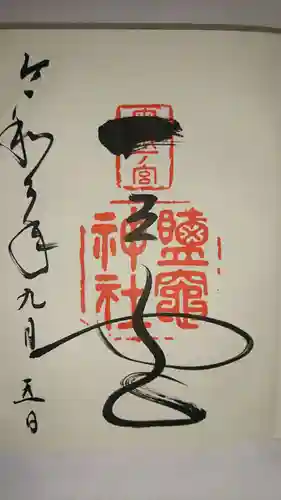 一之宮
鹽竈
神社
令和年九月五日